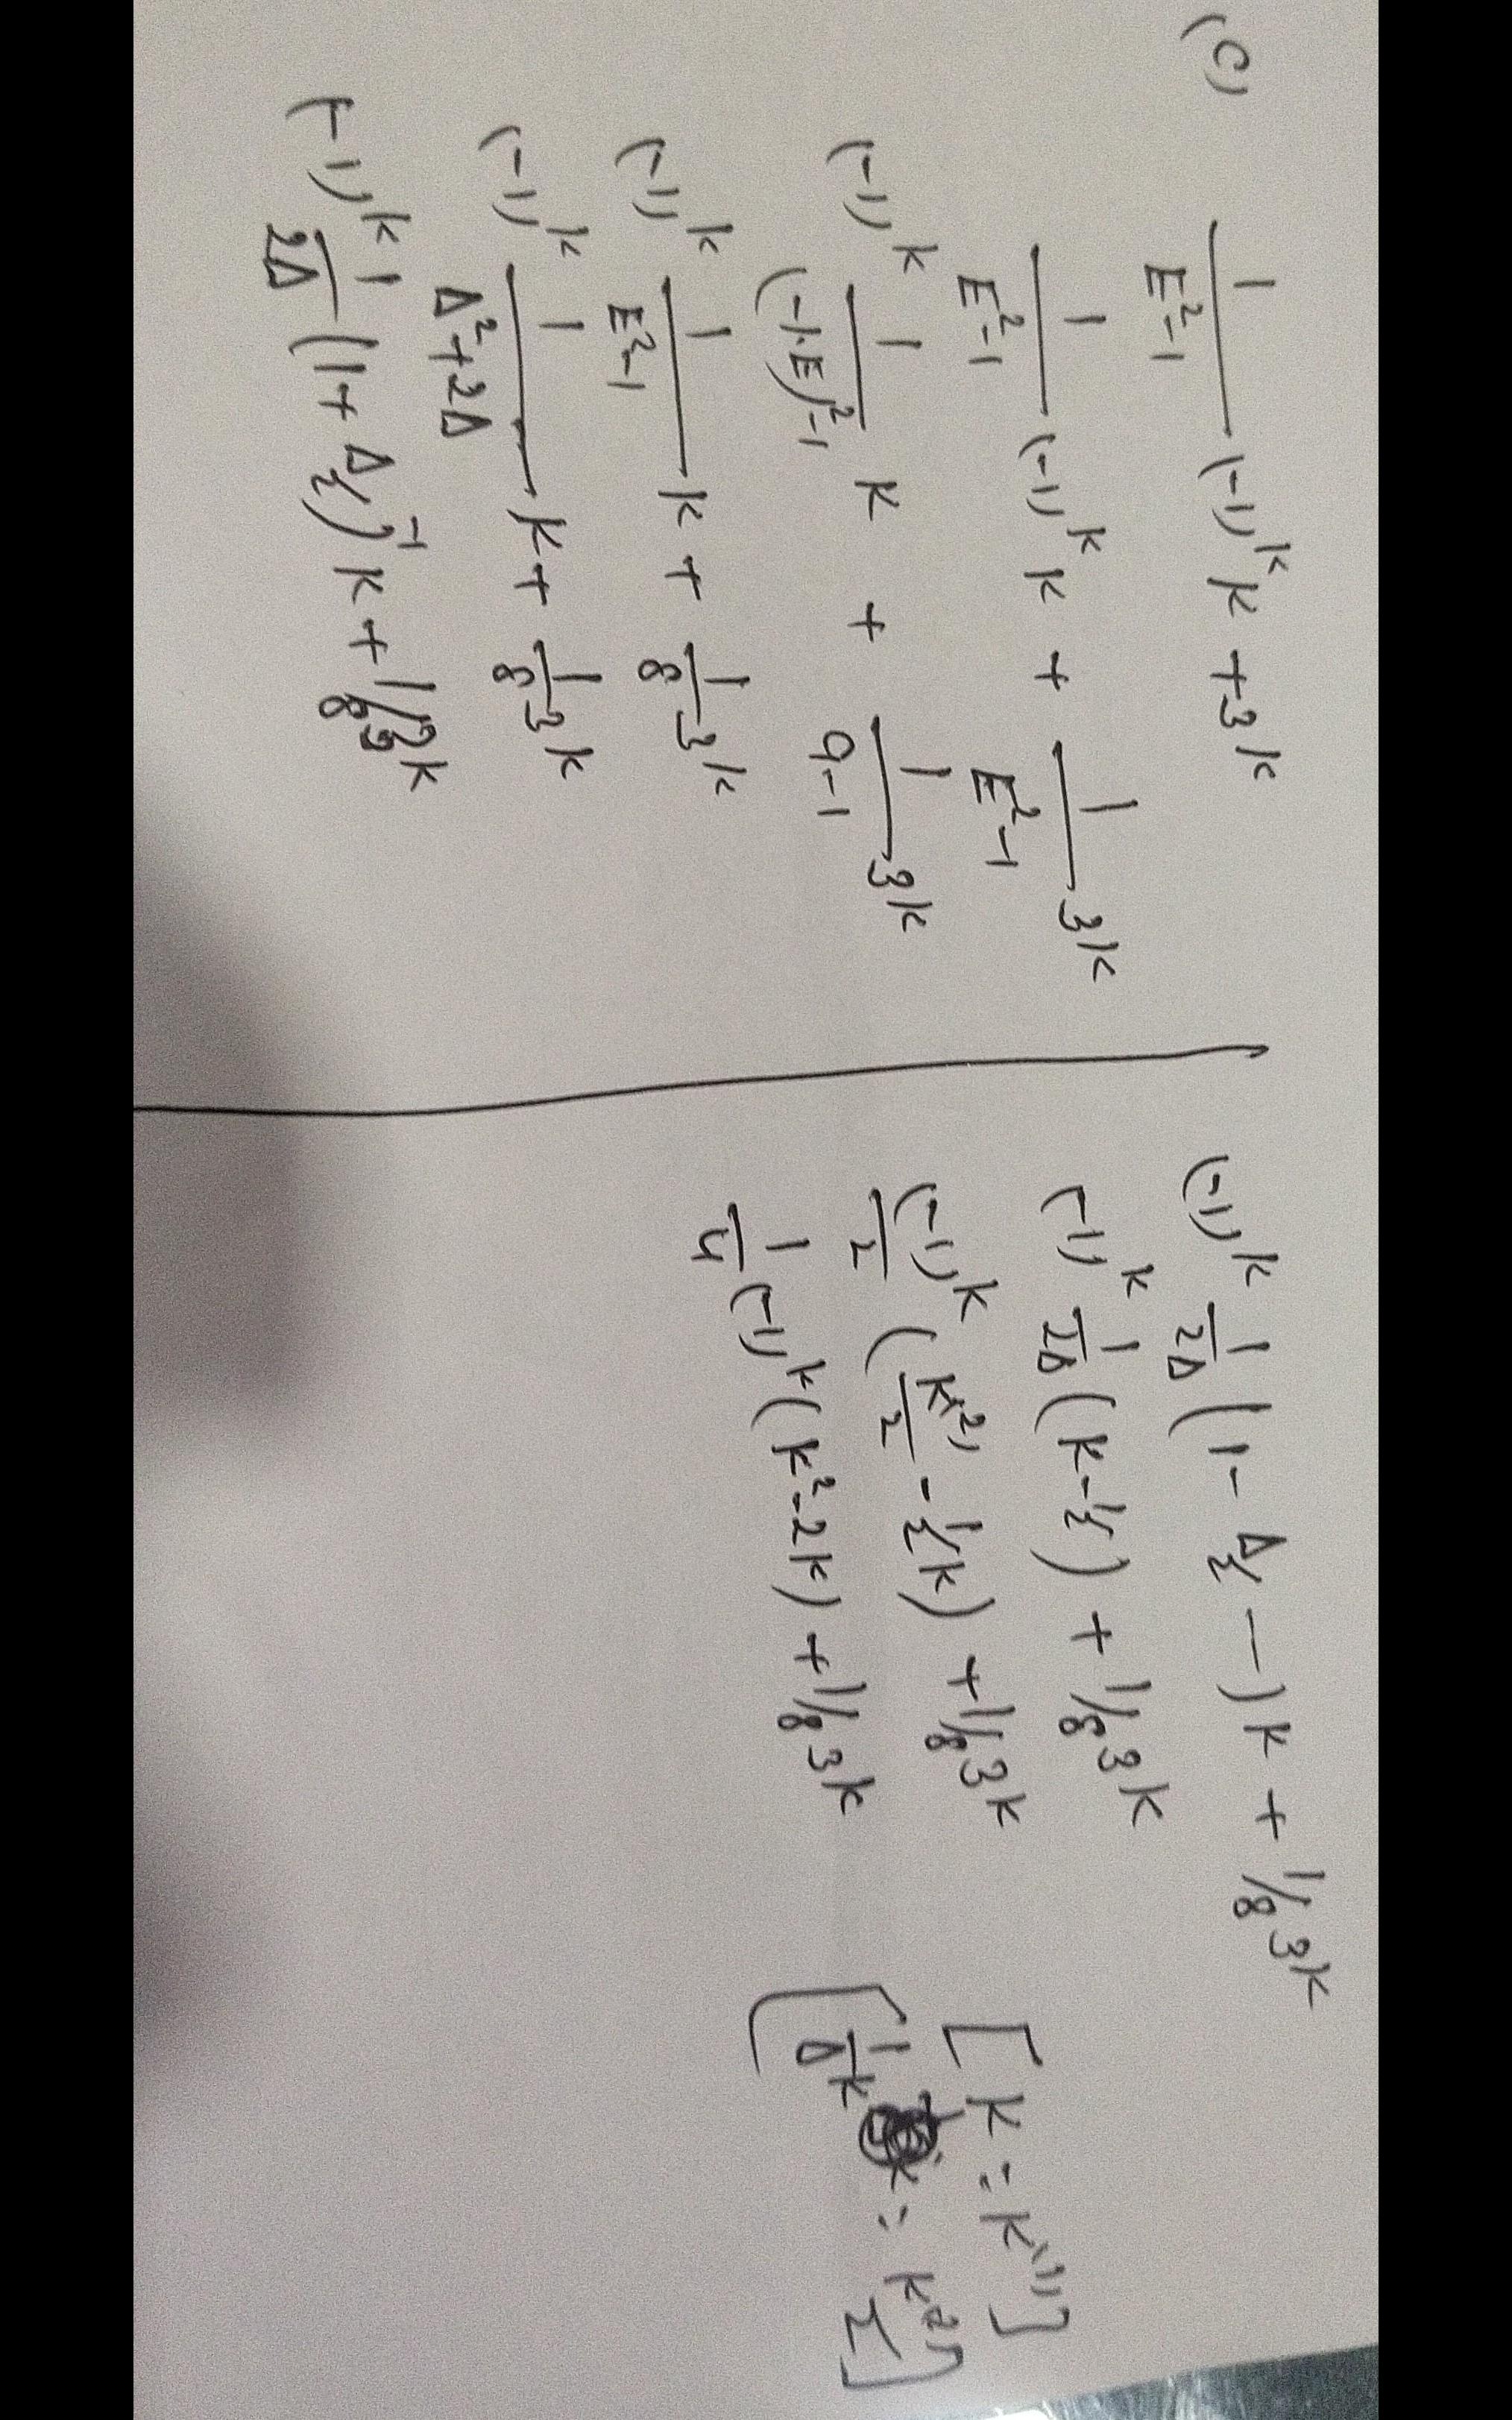 (C) 1/(E²-1) (-1)^k k + 3^k
1/(E²-1) (-1)^k k + 1/(E²-1) 3^k
(-1)^k 1/((-1·E)²-1) k + 1/(9-1) 3^k
(-1)^k 1/(E²-1) k + 1/8 3^k
(-1)^k 1/(Δ²+2Δ) k + 1/8 3^k
(-1)^k 1/(2Δ) (1+Δ/2)^-1 k + 1/8 3^k
(-1)^k 1/(2Δ) (1-Δ/2 —) k + 1/8 3^k
(-1)^k 1/(2Δ) (k-1/2) + 1/8 3^k
(-1)^k/2 (k^(2)/2 - 1/2 k) + 1/8 3^k
[k = k^(1)]
1/4 (-1)^k (k²-2k) + 1/8 3^k
[1/Δ k = k^(2)/2]